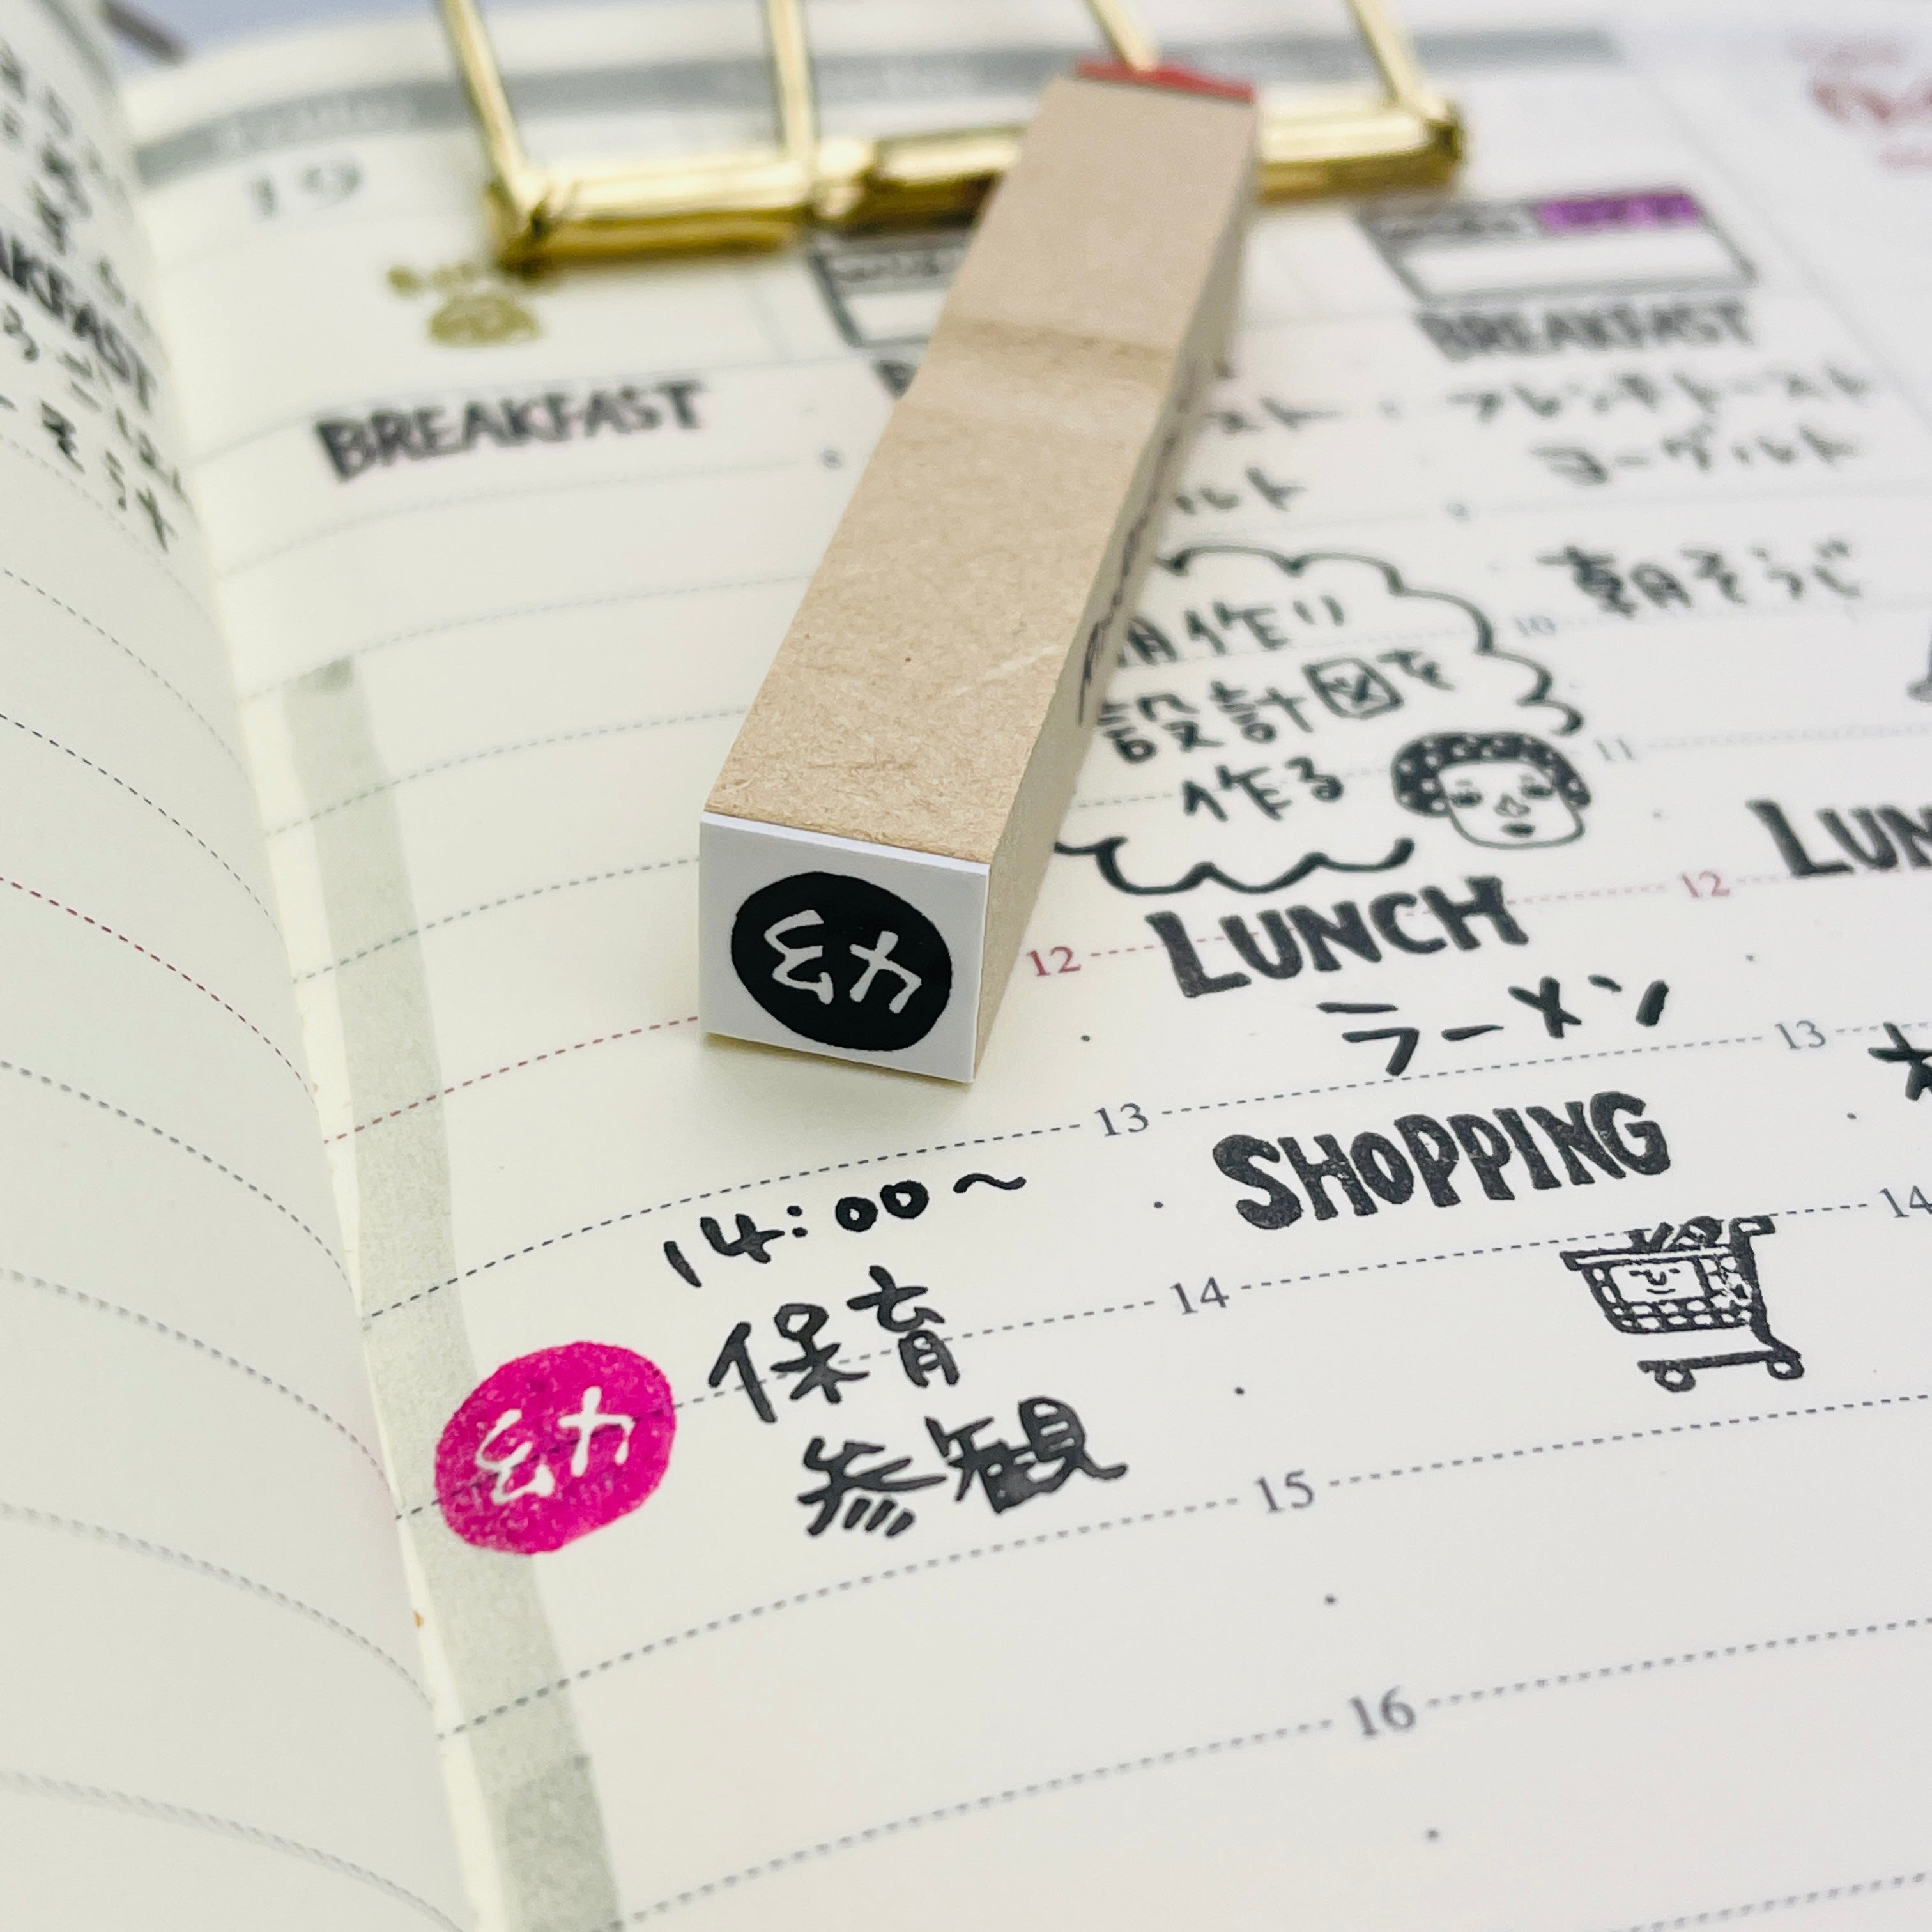 19
BREAKFAST
幼
14:00〜
保育
参観
幼
作り
設計図を
作る
12
LUNCH
ラーメン
13
SHOPPING
14
15
16
BREAKFAST
フレンチトースト
ヨーグルト
朝そうじ
10
11
12
13
14